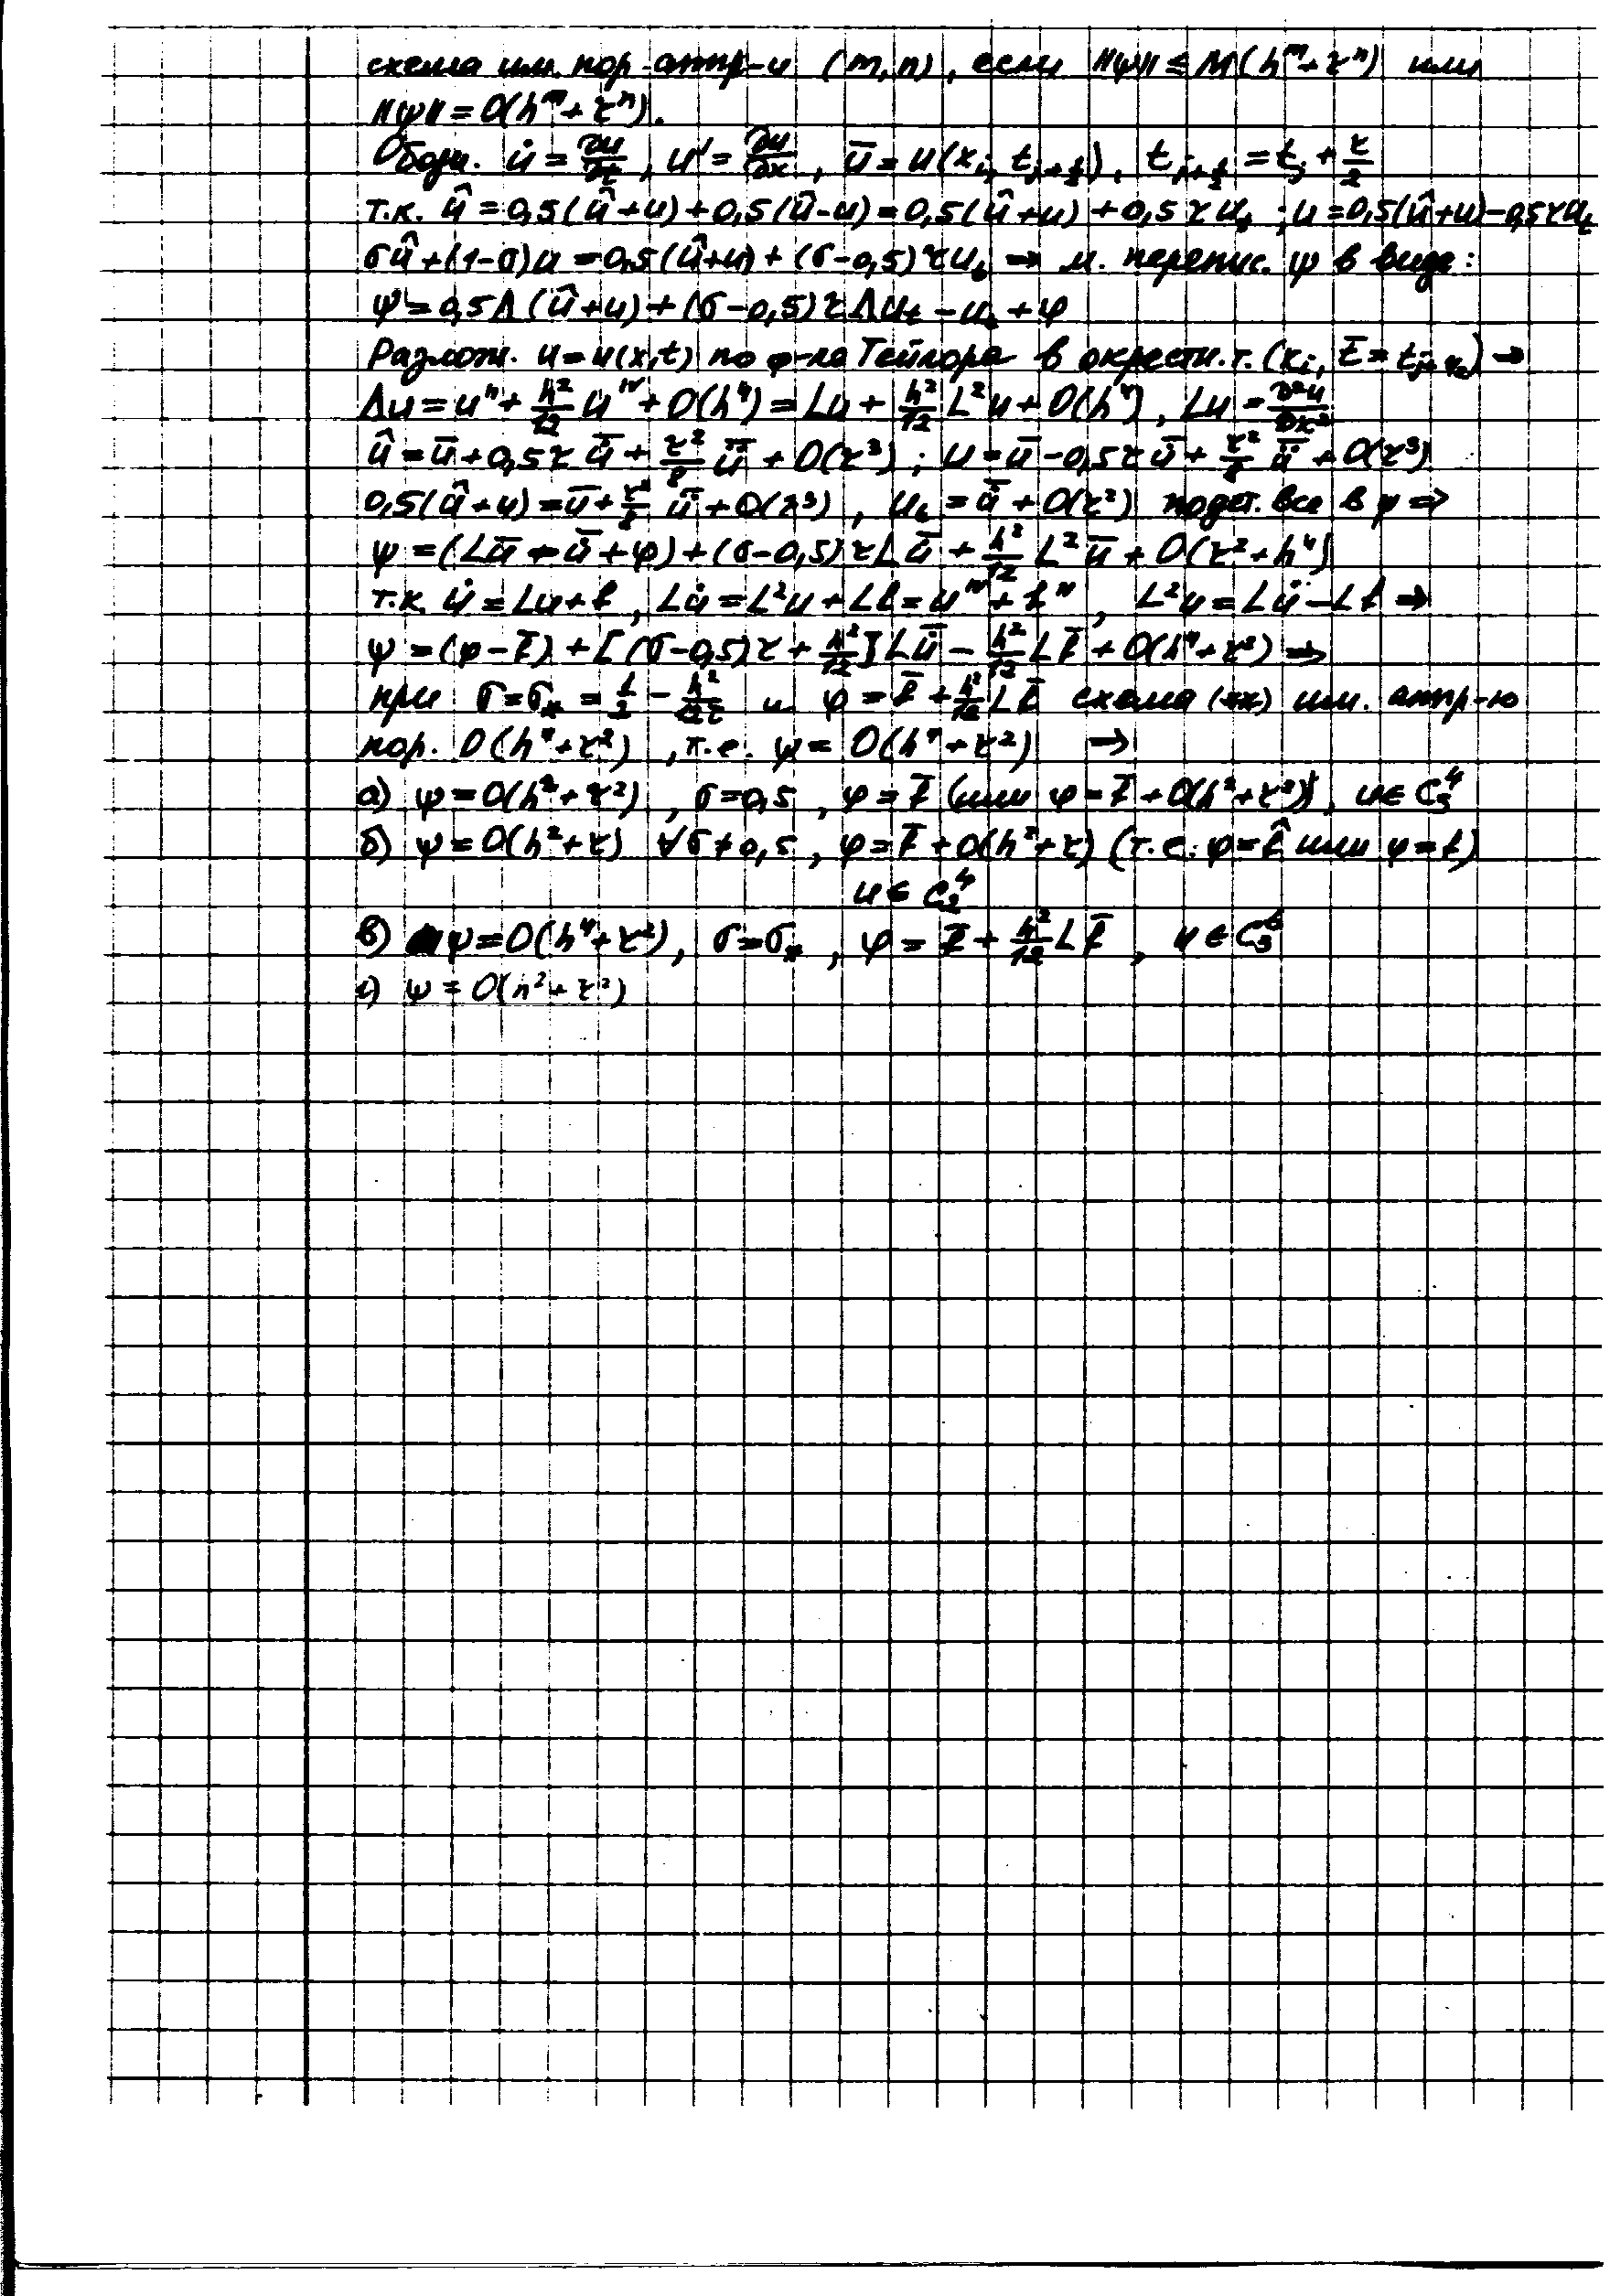 схема им. пор. аппр-и (m,n), если ||ψ|| ≤ M(h^m + τ^n) или
||ψ|| = O(h^m + τ^n).
Обозн. u̇ = ∂u/∂t, u' = ∂u/∂x, ū = u(x_i, t_{j+1/2}), t_{j+1/2} = t_j + τ/2
т.к. û = 0,5(û+u) + 0,5(û-u) = 0,5(û+u) + 0,5τu_t ; u = 0,5(û+u) - 0,5τu_t
σû + (1-σ)u = 0,5(û+u) + (σ-0,5)τu_t ⇒ м. перепис. ψ в виде:
ψ = 0,5Λ(û+u) + (σ-0,5)τΛu_t - u_t + φ
Разлож. u = u(x,t) по ф-ле Тейлора в окрестн. т. (x_i, t̄ = t_{j+1/2}) ⇒
Λu = u'' + h²/12 u^{IV} + O(h⁴) = Lu + h²/12 L²u + O(h⁴), Lu = ∂²u/∂x²
û = ū + 0,5τ u̇̄ + τ²/8 ǖ + O(τ³); u = ū - 0,5τ u̇̄ + τ²/8 ǖ + O(τ³)
0,5(û+u) = ū + τ²/8 ǖ + O(τ³), u_t = u̇̄ + O(τ²) подст. все в ψ ⇒
ψ = (Lū - u̇̄ + φ) + (σ-0,5)τL u̇̄ + h²/12 L²ū + O(τ²+h⁴)
т.к. u̇ = Lu + f, Lu̇ = L²u + Lf = u^{IV} + f'', L²u = Lu̇ - Lf ⇒
ψ = (φ - f̄) + [(σ-0,5)τ + h²/12] L u̇̄ - h²/12 L f̄ + O(h⁴+τ²) ⇒
при σ = σ_* = 1/2 - h²/12τ и φ = f̄ + h²/12 L f̄ схема (**) им. аппр-ю
пор. O(h⁴+τ²), т.е. ψ = O(h⁴+τ²) ⇒
а) ψ = O(h²+τ²), σ = 0,5, φ = f̄ (или φ = f̄ + O(h²+τ²)), u ∈ C_3^4
б) ψ = O(h²+τ) ∀σ ≠ 0,5, φ = f̄ + O(h²+τ) (т.е. φ = f̂ или φ = f)
u ∈ C_2^4
в) ψ = O(h⁴+τ²), σ = σ_*, φ = f̄ + h²/12 L f̄, u ∈ C_3^6
г) ψ = O(h²+τ²)